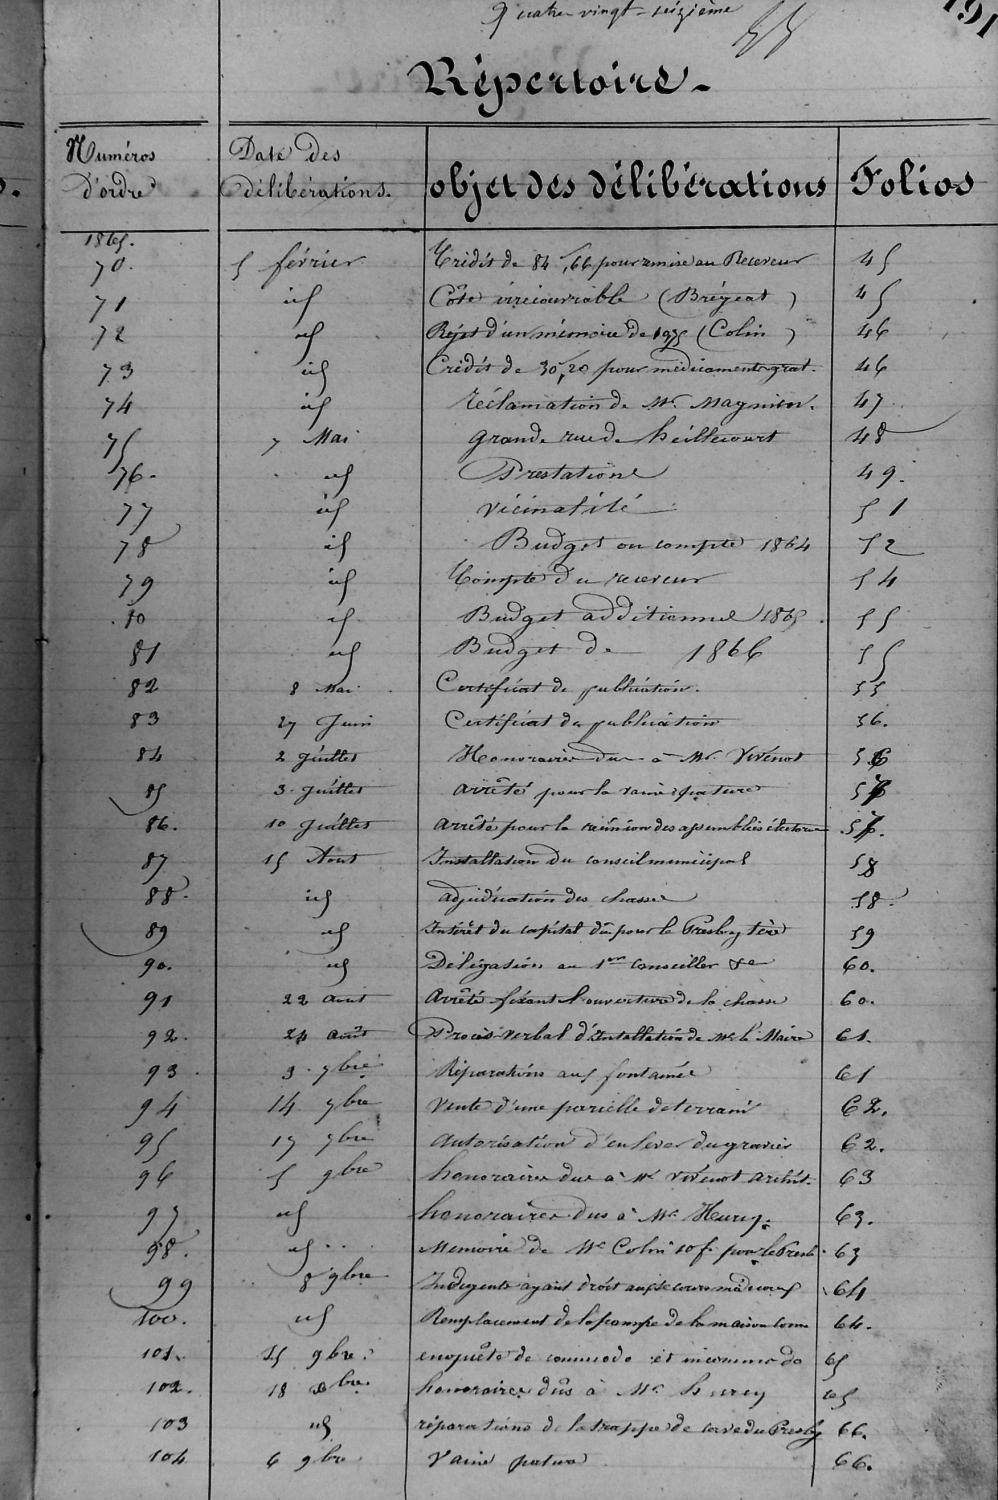 Quatre vingt-seizième
191
Répertoire.
Numéros d'ordre | Date des délibérations. | objet des délibérations | Folios
1865.
70. | 5 février | Crédit de 84f,66 pour remise au Receveur | 45
71 | id | Côte irrécouvrable (Brégeat) | 45
72 | id | Rejet d'un mémoire de (Colin) | 46
73 | id | Crédit de 30f,20 pour médicaments grat. | 46
74 | id | réclamation de Mr. Magnien. | 47
75 | 7 Mai | grande rue de heillecourt | 48
76. | id | Prestations | 49.
77 | id | vicinalité | 51
78 | id | Budget ou compte 1864 | 52
79 | id | Compte du receveur | 54
80 | id | Budget additionnel 1865. | 55
81 | id | Budget de 1866 | 55
82 | 8 Mai | Certificat de publication. | 55
83 | 27 Juin | Certificat de publication | 56.
84 | 2 juillet | Honoraires dus à Mr. Vivenot | 56
85 | 3 juillet | arrêté pour la vaine pature | 57
86. | 10 juillet | arrêté pour la réunion des assemblées | 57.
87 | 15 Aout | Installation du conseil municipal | 58
88. | id | adjudication des chasses | 58.
89 | id | Intérêt du capital dû pour le Presbytère | 59
90. | id | Délégation au 1er conseiller &c | 60.
91 | 22 aout | arrêté fixant l'ouverture de la chasse | 60.
92. | 24 août | Procès verbal d'Installation de Mr. le Maire | 61.
93 | 3 7bre | Réparations aux fontaines | 61
94 | 14 7bre | vente d'une parcelle de terrain | 62.
95 | 17 7bre | autorisation d'enlever du gravier | 62.
96 | 5 9bre | honoraires dus à Mr Vivenot archit. | 63
97 | id | honoraires dus à Mr. Hury. | 63.
98. | id | Memoire de Mr Colin 10f. pour le Presb | 63
99 | 8 9bre | Indigents ayant droit aux secours médicaux | 64
100. | id | Remplacement de la pompe de la maison com | 64.
101. | 15 9bre. | enquête de commodo et incommodo | 65
102. | 18 | honoraires dûs à Mr. hurey | 65
103 | id | réparations de la trappe de cave du Presby | 66.
104 | 6 9bre | Vaine pature | 66.